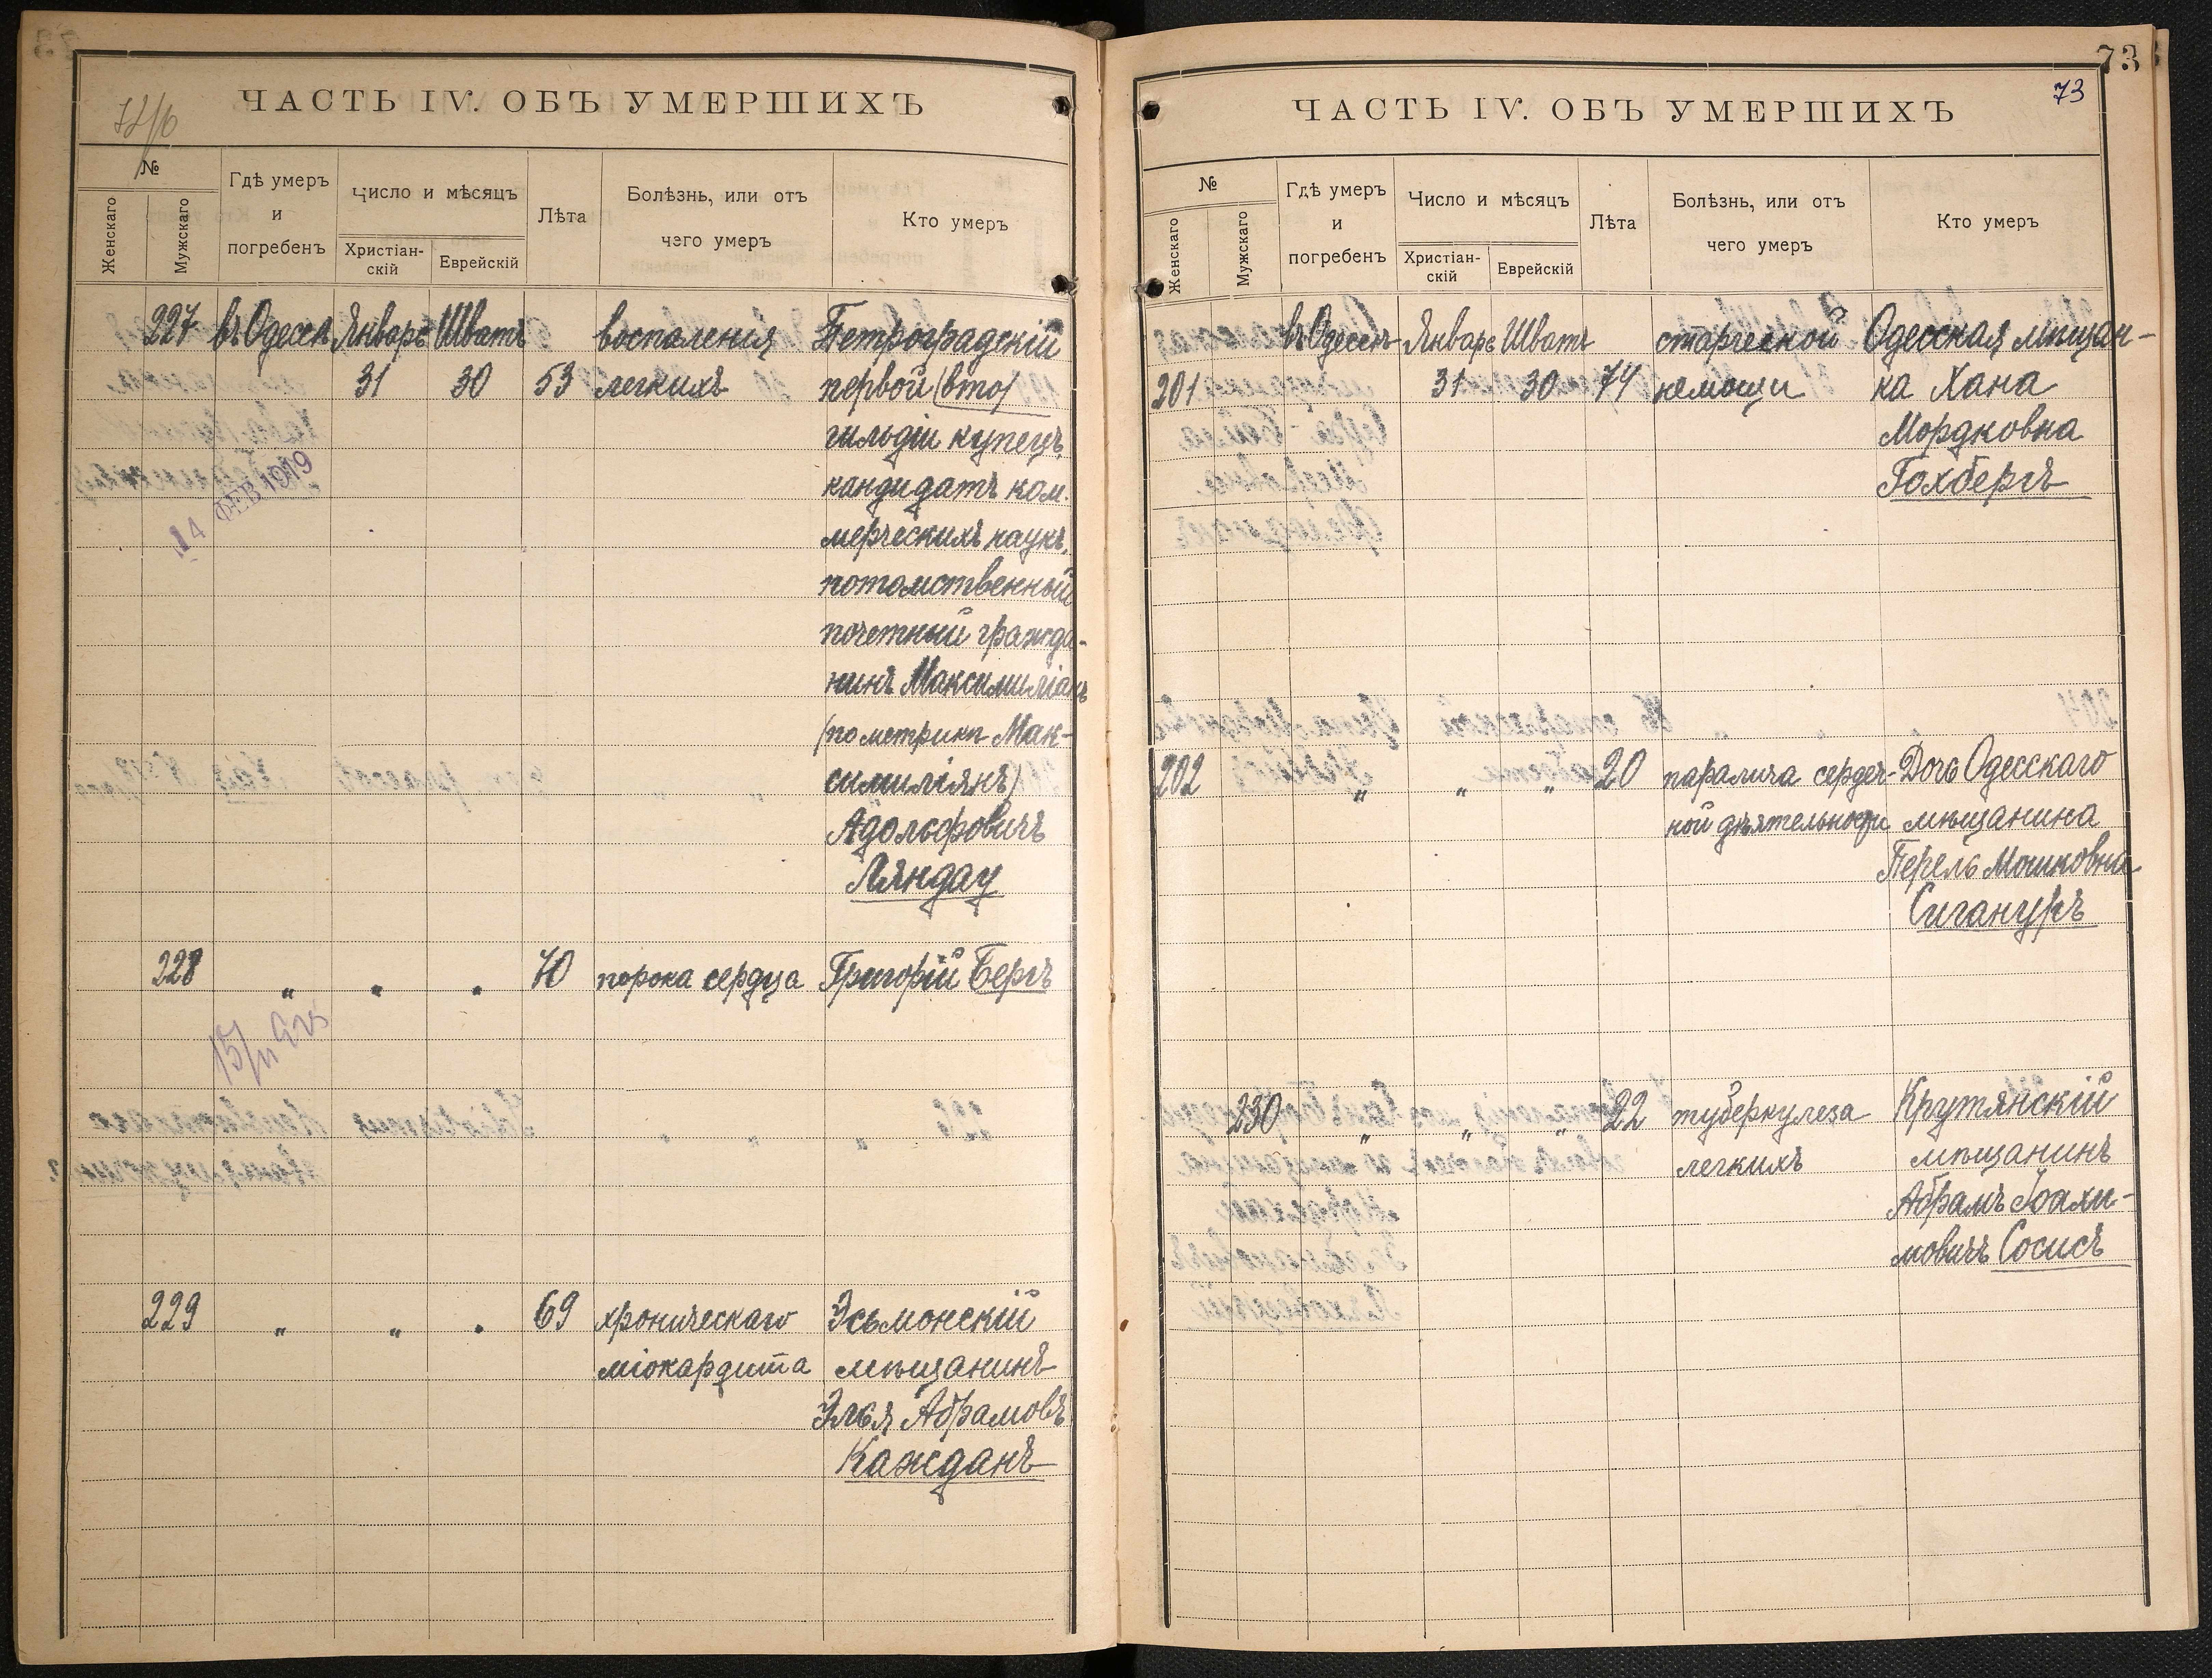 ЧАСТЬ IV. ОБЪ УМЕРШИХЪ
№
Женскаго
Мужскаго
Гдѣ умеръ
и
погребенъ
Число и мѣсяцъ
Христіан-
скій
Еврейскій
Лѣта
Болѣзнь, или отъ
чего умеръ
Кто умеръ
227 въ Одессѣ Январь Шватъ воспаленія Петроградскій
31 30 53 легкихъ первой (вто)
гильдіи купецъ,
кандидатъ ком-
мерческихъ наукъ,
потомственный
почетный гражда-
нинъ Максимиліанъ
(по метрикѣ Мак-
симиліянъ)
Адольфовичъ
Ляндау
14 ФЕВ 1919
228 " " " 70 порока сердца Григорій Бергъ
229 " " " 69 хроническаго Эсьмонскій
міокардита мѣщанинъ
Элья Абрамовъ
Кажданъ
73
73
ЧАСТЬ IV. ОБЪ УМЕРШИХЪ
№
Женскаго
Мужскаго
Гдѣ умеръ
и
погребенъ
Число и мѣсяцъ
Христіан-
скій
Еврейскій
Лѣта
Болѣзнь, или отъ
чего умеръ
Кто умеръ
въ Одессѣ Январь Шватъ старческой Одесская мѣщан-
201 31 30 74 немощи ка Хана
Мордковна
Гохбергъ
202 " " " 20 паралича сердеч- Дочь Одесскаго
ной дѣятельности мѣщанина
Перель Мошковна
Сигануръ
230 " " " 22 туберкулеза Крутянскій
легкихъ мѣщанинъ
Абрамъ Іоахи-
мовичъ Сосисъ